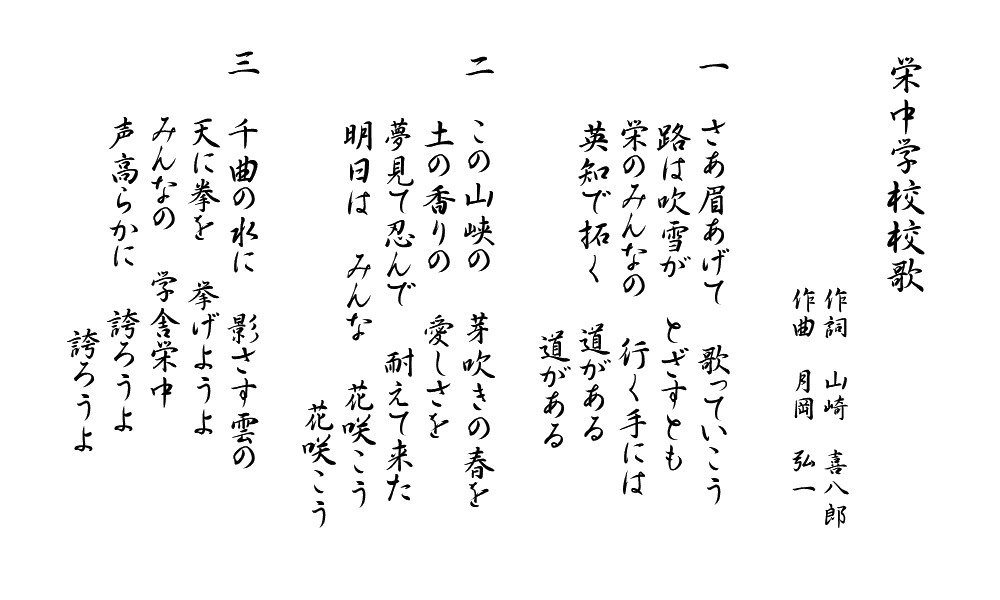 栄中学校校歌
作詞 山崎 喜八郎
作曲 月岡 弘一
一 さあ眉あげて 歌っていこう
路は吹雪が とざすとも
栄のみんなの 行く手には
英知で拓く 道がある
道がある
二 この山峡の 芽吹きの春を
土の香りの 愛しさを
夢見て忍んで 耐えて来た
明日は みんな 花咲こう
花咲こう
三 千曲の水に 影さす雲の
天に拳を 挙げようよ
みんなの 学舎栄中
声高らかに 誇ろうよ
誇ろうよ